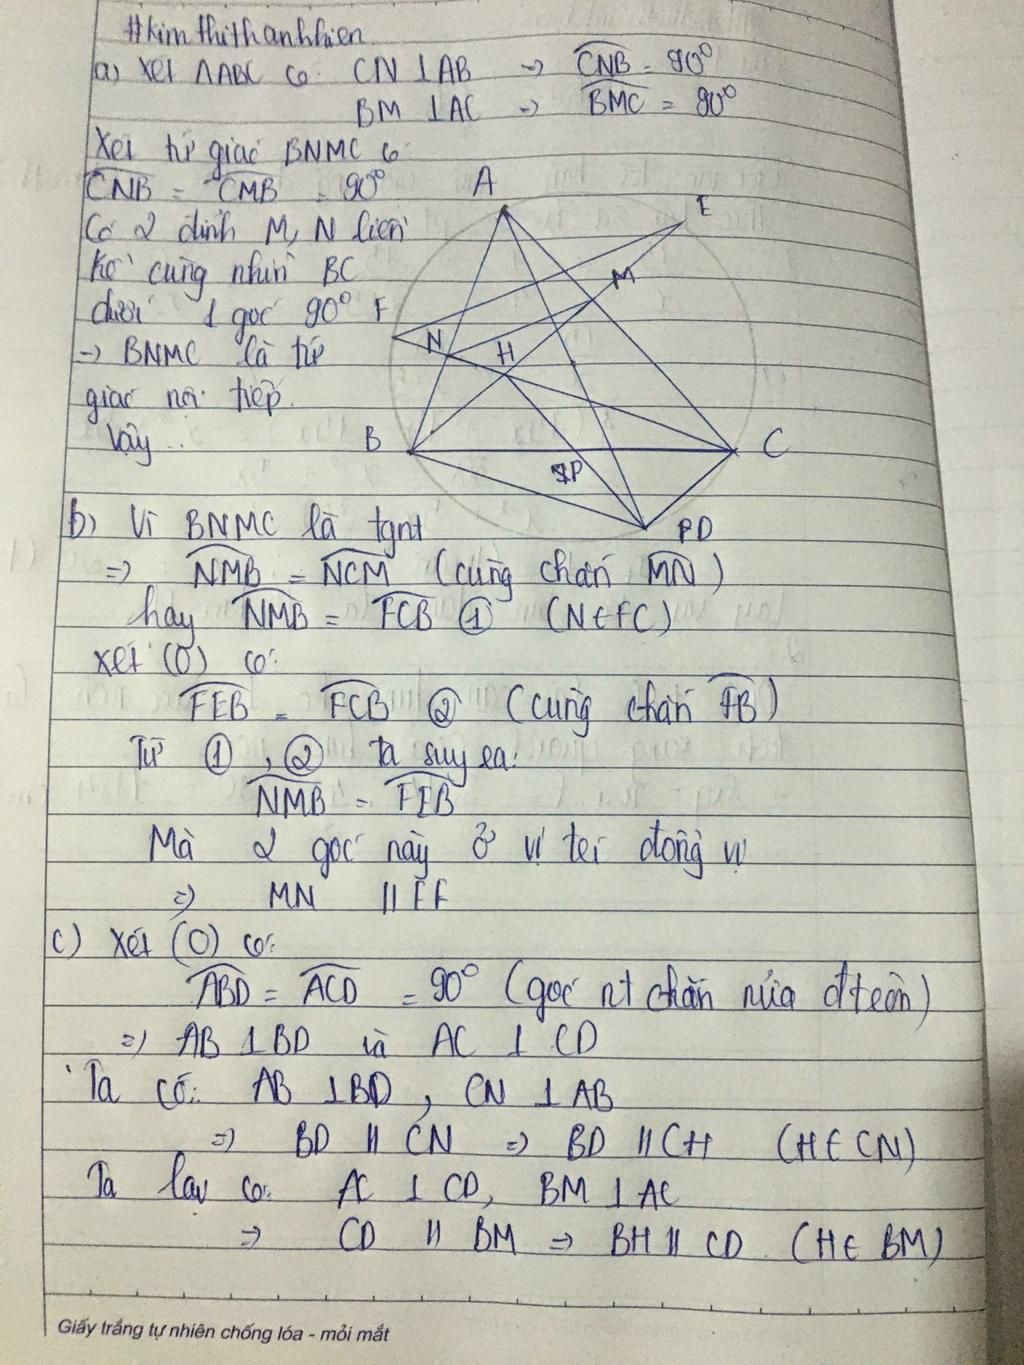 #kimthithanhhien
a) Xét ΔABC có: CN ⊥ AB → CNB = 90°
BM ⊥ AC → BMC = 90°
Xét tứ giác BNMC có:
CNB = CMB = 90°
Có 2 đỉnh M, N liền
kề cùng nhìn BC
dưới 1 góc 90°
→ BNMC là tứ
giác nội tiếp.
Vậy...
A
E
M
F
N
H
B
C
P
D
b) Vì BNMC là tgnt
=> NMB = NCM (cùng chắn MN)
hay NMB = FCB ① (N ∈ FC)
xét (O) có:
FEB = FCB ② (cùng chắn FB)
Từ ①, ② ta suy ra:
NMB = FEB
Mà 2 góc này ở vị trí đồng vị
=> MN // EF
c) Xét (O) có:
ABD = ACD = 90° (góc nt chắn nửa đtròn)
=> AB ⊥ BD và AC ⊥ CD
Ta có: AB ⊥ BD, CN ⊥ AB
=> BD // CN => BD // CH (H ∈ CN)
Ta lại có: AC ⊥ CD, BM ⊥ AC
=> CD // BM => BH // CD (H ∈ BM)
Giấy trắng tự nhiên chống lóa - mỏi mắt